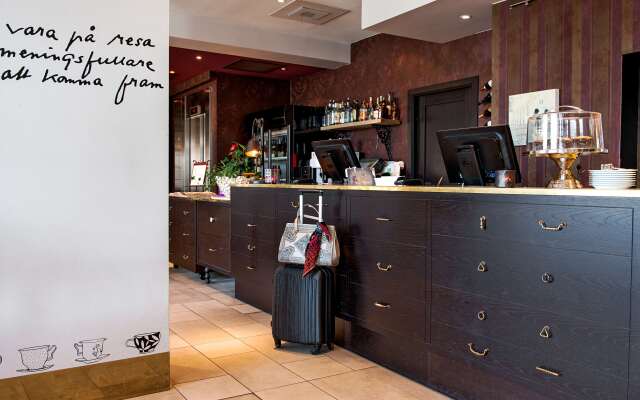 vara på resa
meningsfullare
att komma fram